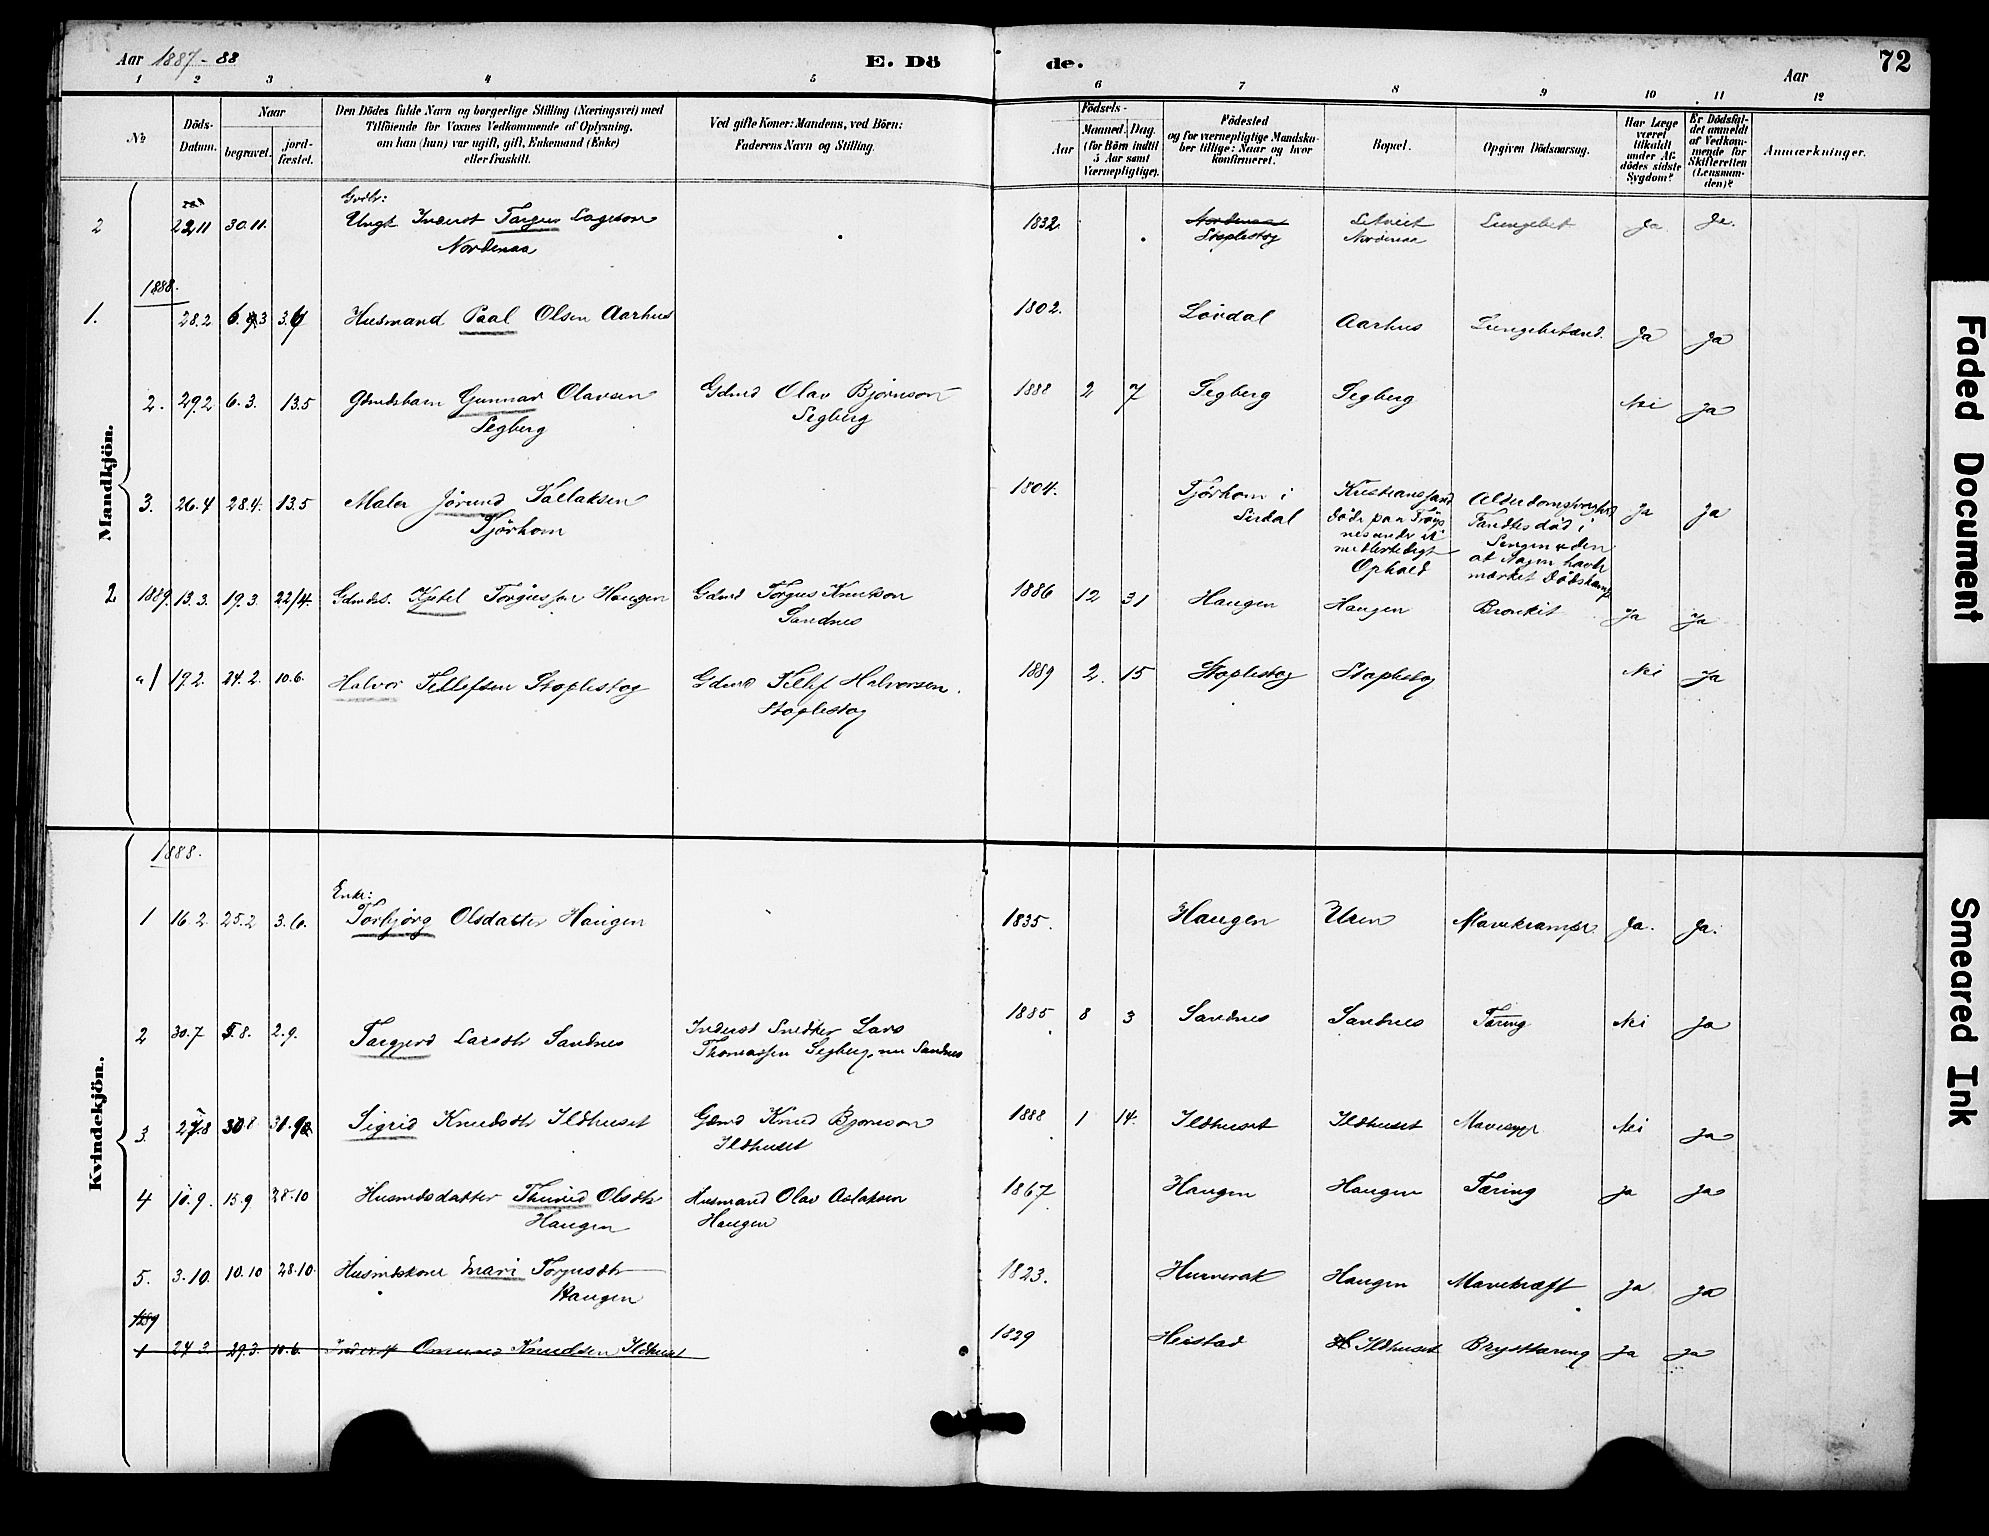 Aar 1887-88
E. Dö
de.
Aar
72
1 2 3 4 5 6 7 8 9 10 11 12
№
Döds-
Datum.
Naar
begravet.
jord-
fæstet.
Den Dödes fulde Navn og borgerlige Stilling (Næringsvei) med
Tilföiende for Voxnes Vedkommende af Oplysning,
om han (hun) var ugift, gift, Enkemand (Enke)
eller fraskilt.
Ved gifte Koner: Mandens, ved Börn:
Faderens Navn og Stilling.
Födsels-
Aar
Maaned. Dag.
(for Börn indtil
5 Aar samt
Værnepligtige).
Födested
og for værnepligtige Mandska-
ber tillige: Naar og hvor
konfirmeret.
Bopæl.
Opgiven Dödsaarsag.
Har Læge
været
tilkaldt
under Af-
dödes sidste
Sygdom?
Er Dödsfal-
det anmeldt
af Vedkom-
mende for
Skifteretten
(Lensman-
den)?
Anmærkninger.
Mandkjön.
2 22 11 30.11. Ungk Inderst Targus
Nordenaa
1832. Nordenaa
Staplestog
Nordenaa
Lungebet Ja Ja.
1888.
1. 28.2 6. 3 3.6 Husmand Paal Olsen Aarhus 1802. Aarhus Ja Ja
2. 29.2 6.3. 13.5 Gunnar Olavsen Gdmd Olav Bjørnson 1888 2 7 Segberg Segberg Nei Ja
Segberg Segberg
3. 26.4 28.4. 13.5 Maler Jørund Tallaksen 1804. Tjørhom i Kristianssand Ja Ja
Tjørhom Sirdal
Ophold
Fandtes død i
Sengen uden
at Nogen havde
mærket Dødskamp
2 1889. 13.3. 19.3. 22/4. Gdmds. Kjetel Torgussøn Haugen Gdmd Torgus Knutson 1886 12 31 Haugen Haugen Bronkit Ja Ja
Sandnes
" 1 19.2. 24.2. 10.6. Halvor Tellefsen Staplestog Gdmd Tellef Halvorsen. 1889 2. 15 Staplestog Staplestog Nei Ja
Staplestog
Kvindekjön.
1888.
Enke:
1 16.2. 25.2 3.6. Torbjørg Olsdatter Haugen 1835. Haugen Uren Mavekrampe. Ja. Ja.
2 30.7 5.8. 2.9. Targjerd Larsdtr Sandnes Inderst Snedker Lars 1885 8 3 Sandnes Sandnes Tæring Nei Ja
Thomassen Segberg, nu Sandnes
3 27.8 30 8 Sigrid Knudsdtr Ildhuset Gdmd Knud Bjørnson 1888 1 14. Ildhuset Ildhuset Mavesyge Nei Ja
Ildhuset
4 10.9. 15.9 28.10 Husmdsdatter Thurid Olsdtr Husmand Olav Aslaksen 1867. Haugen Haugen Tæring Ja Ja
Haugen Haugen
5. 3.10. 10.10 28.10. Husmdskone Mari Torgusdtr 1823. Haugen Mavekræft Ja Ja
Haugen
1889
1 24.3. 29.3. 10.6. Inderst Omund Knudsen Ildhuset 1829 Heistad Ildhuset Brysttæring Ja Ja
Faded Document
Smeared Ink